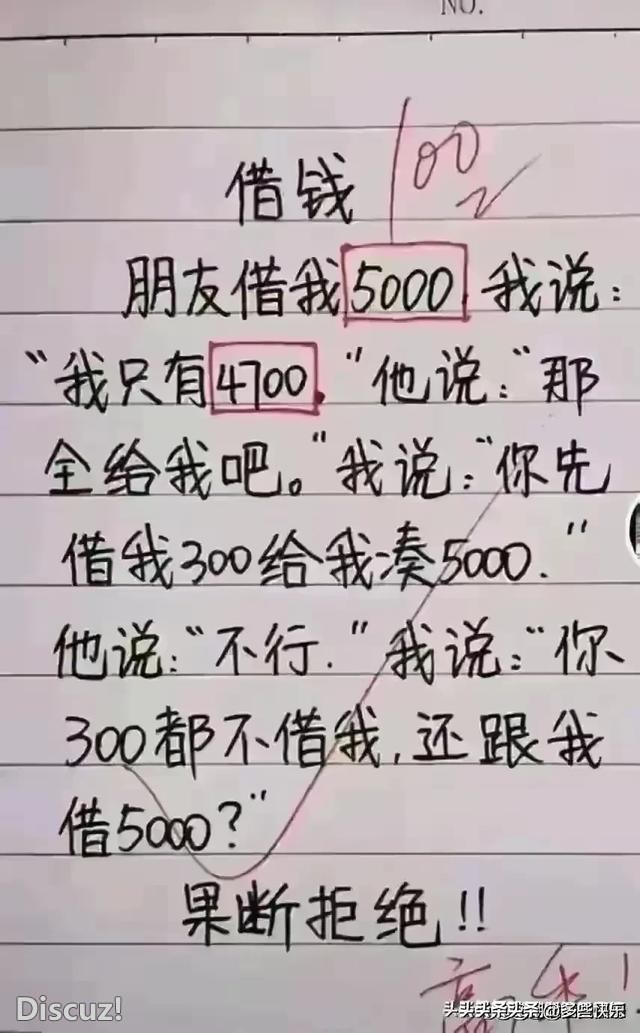 NO.
借钱 100
朋友借我5000 我说：
“我只有4700.“他说：“那
全给我吧。“我说：“你先
借我300给我凑5000.”
他说：“不行.“我说：“你
300都不借我，还跟我
借5000？”
果断拒绝！！
Discuz!